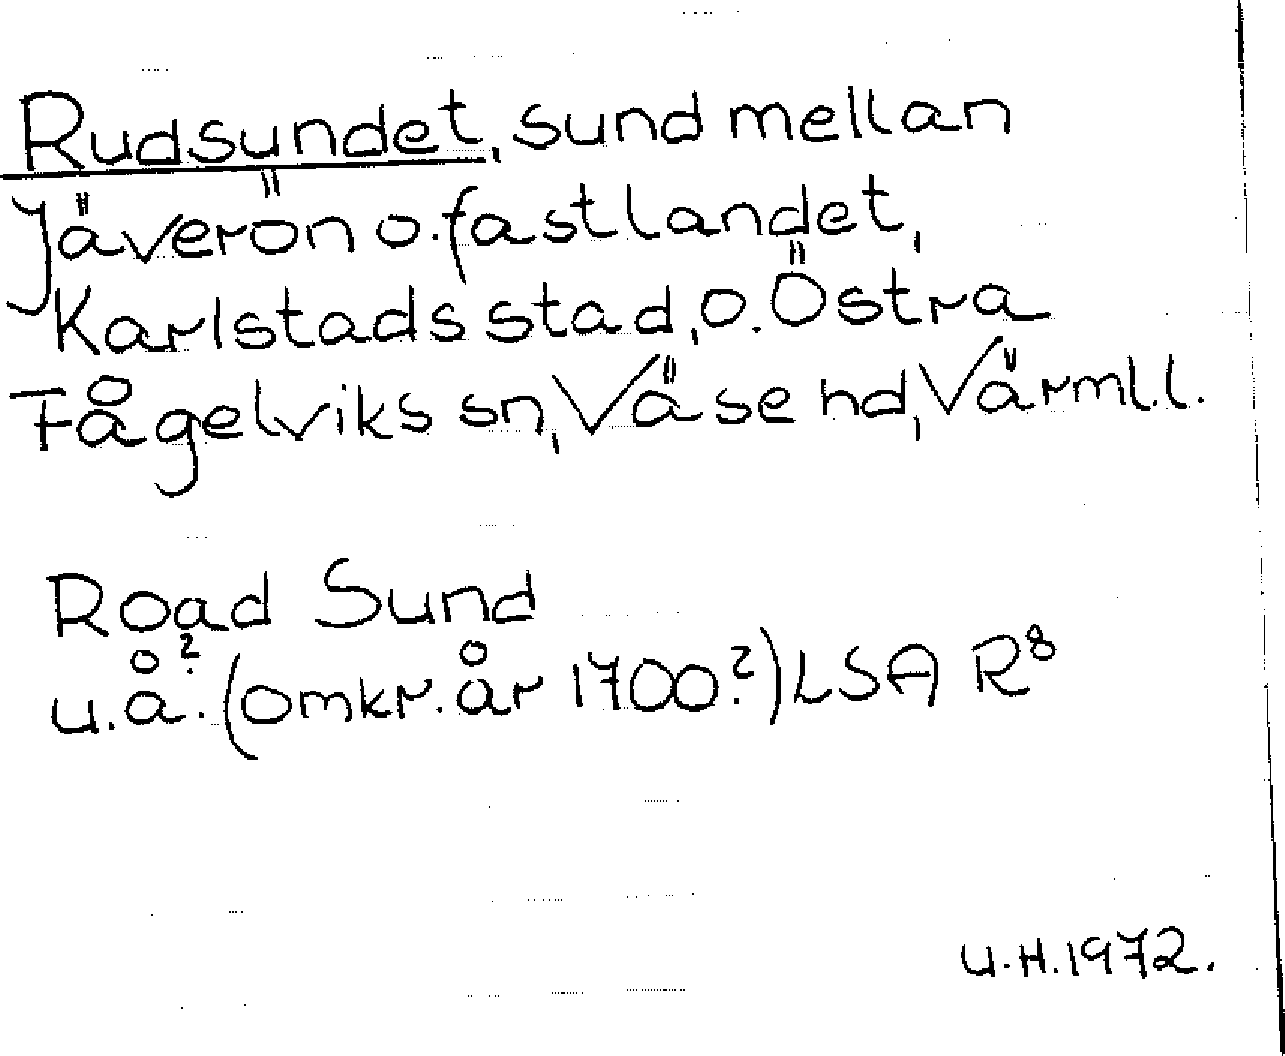 Rudsundet, sund mellan
Jäverön o. fastlandet,
Karlstads stad, o. Östra
Fågelviks sn, Väse hd, Värml.l.
Road Sund
u.å.? (omkr. år 1700?) LSA R8
U.H. 1972.